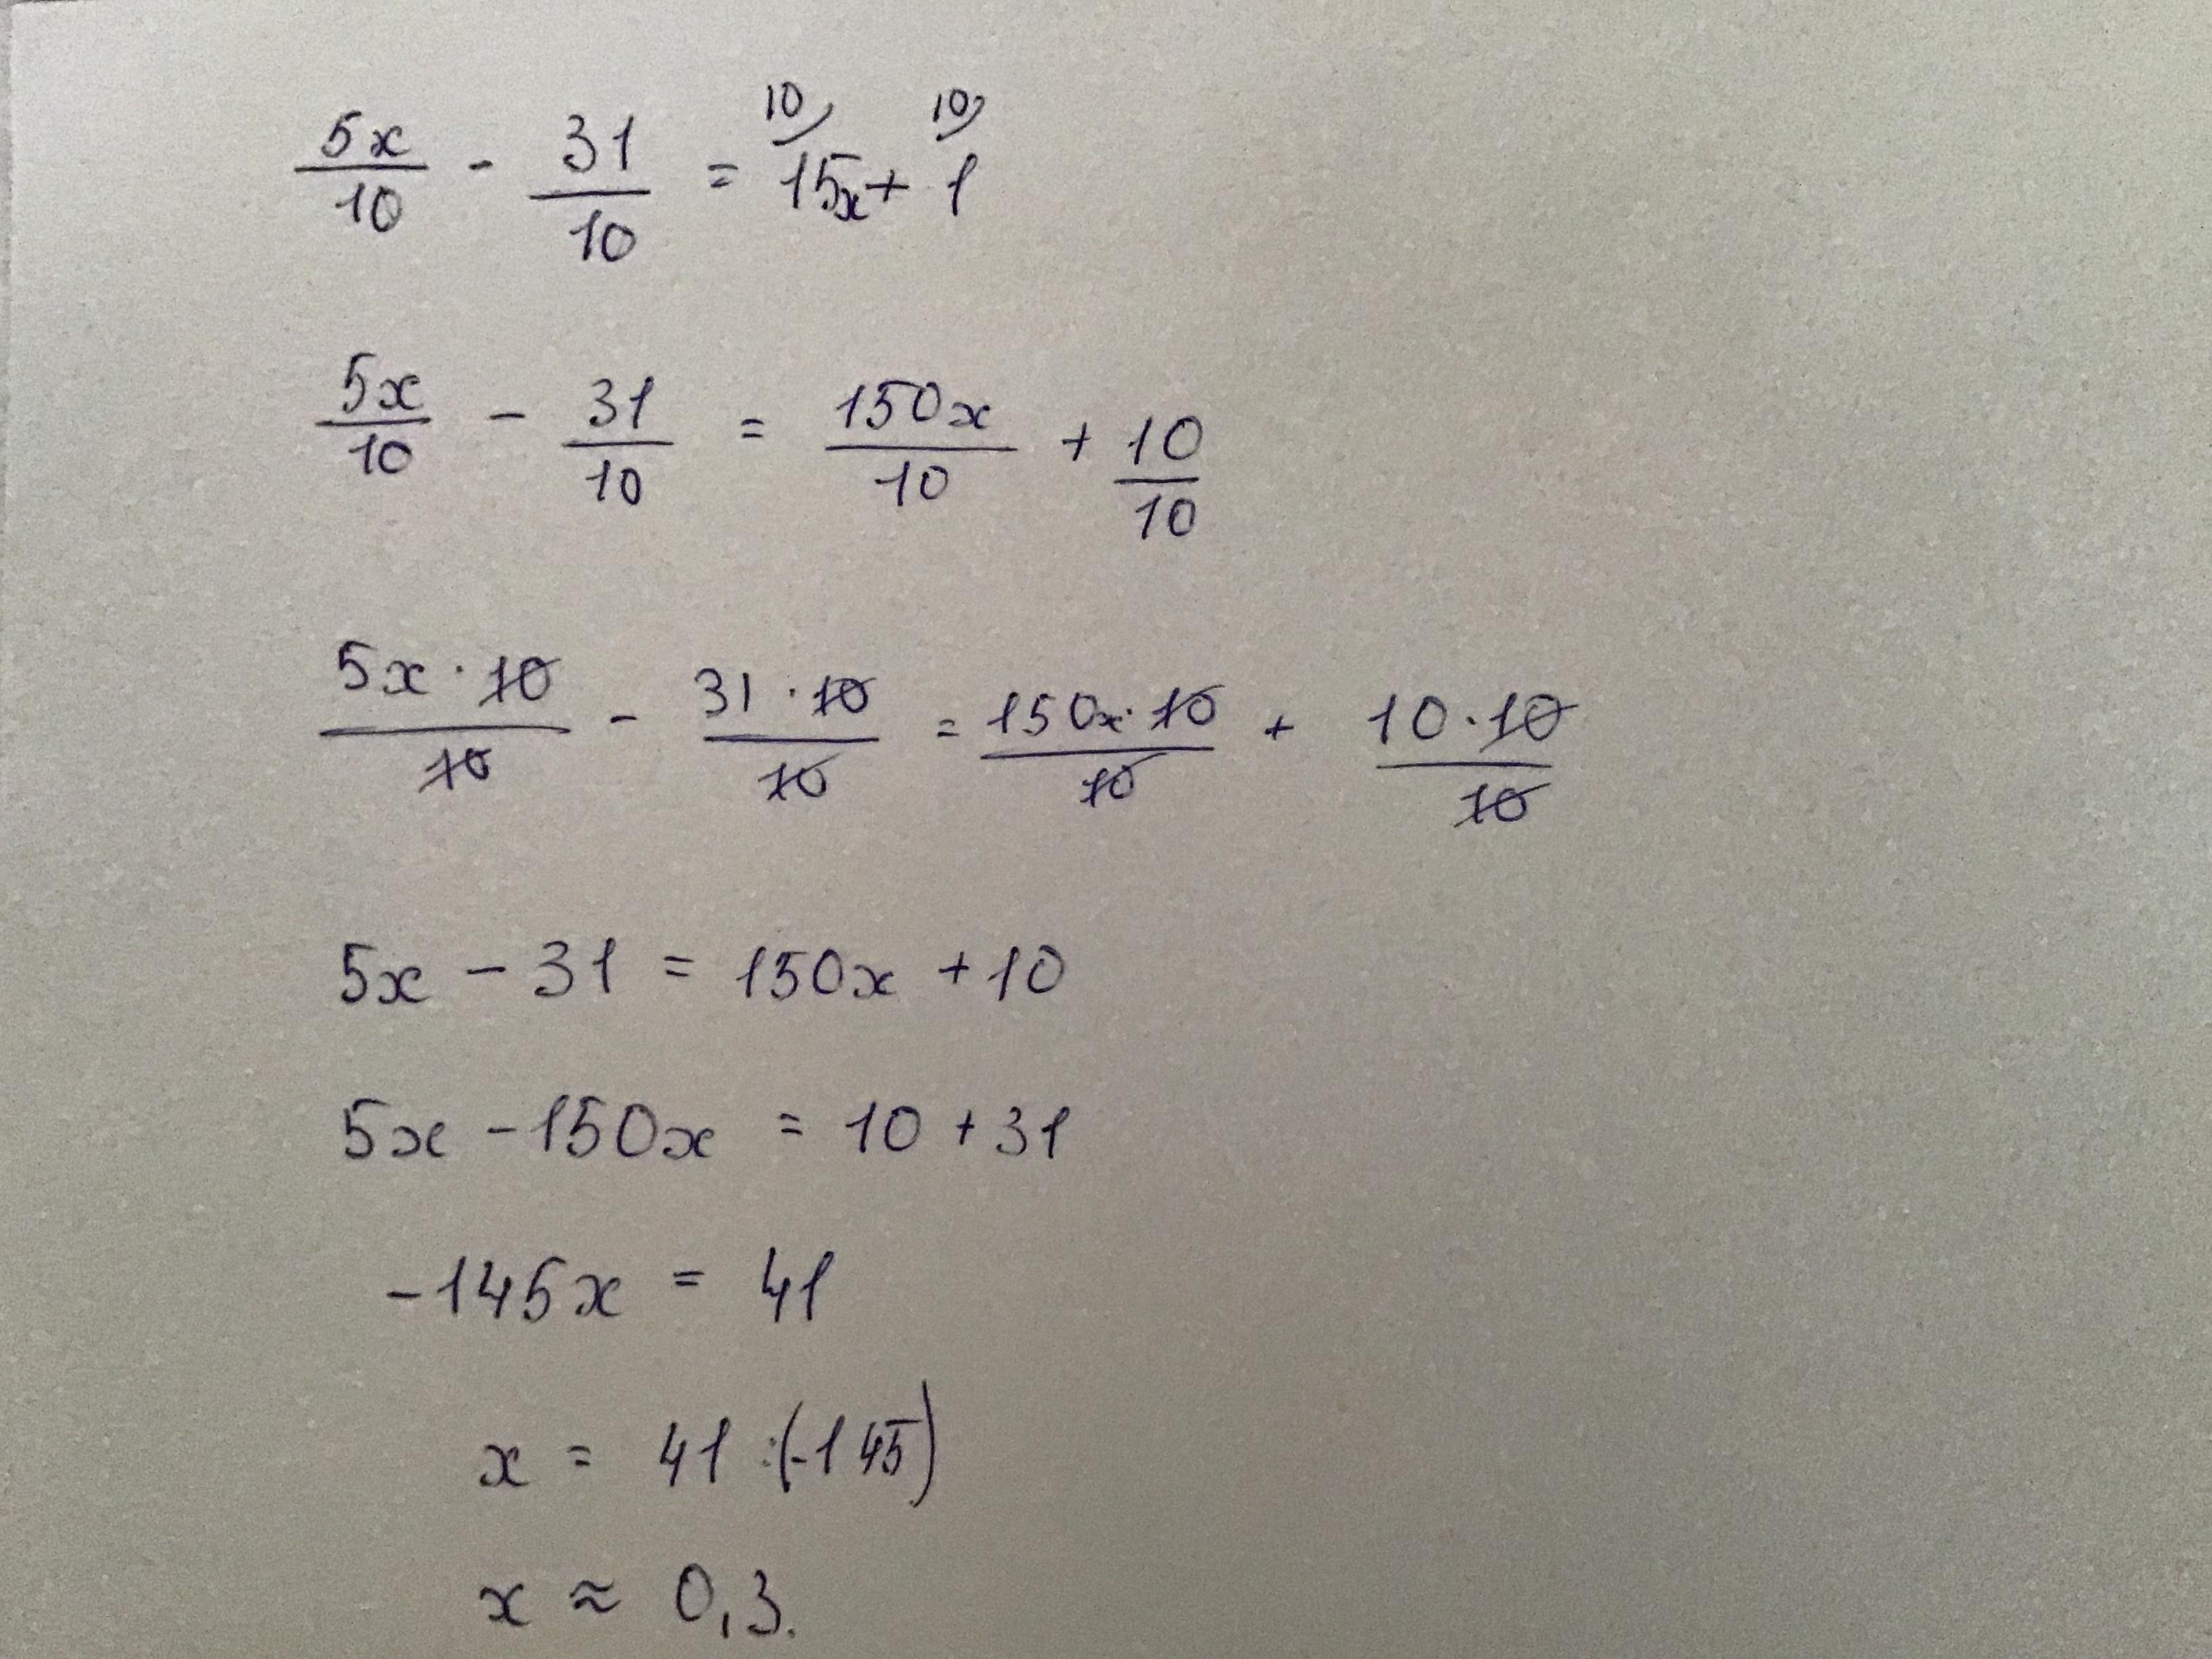 10 10
5x/10 - 31/10 = 15x + 1
5x/10 - 31/10 = 150x/10 + 10/10
5x · 10/10 - 31 · 10/10 = 150x · 10/10 + 10 · 10/10
5x - 31 = 150x + 10
5x - 150x = 10 + 31
-145x = 41
x = 41 :(-145)
x ≈ 0,3.